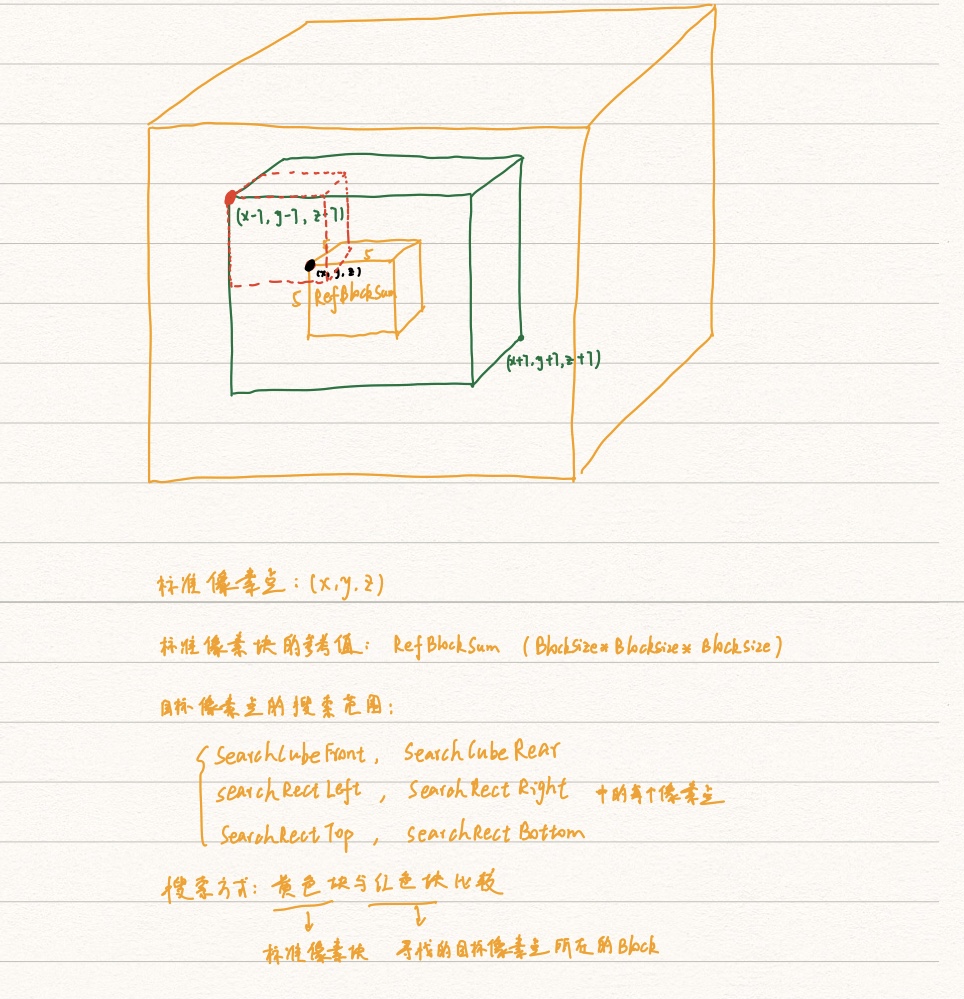 (x-7, y-7, z-7)
5
(x, y, z)
5 RefBlockSum
(x+7, y+7, z+7)
标准像素点：(x, y, z)
标准像素块的参考值： RefBlockSum （BlockSize* Blocksize* Blocksize）
目标像素点的搜索范围：
SearchCubeFront, SearchCubeRear
SearchRectLeft , SearchRectRight 中的每个像素点
SearchRectTop , SearchRectBottom
搜索方式：黄色块与红色块比较
标准像素块 寻找的目标像素点所在的Block